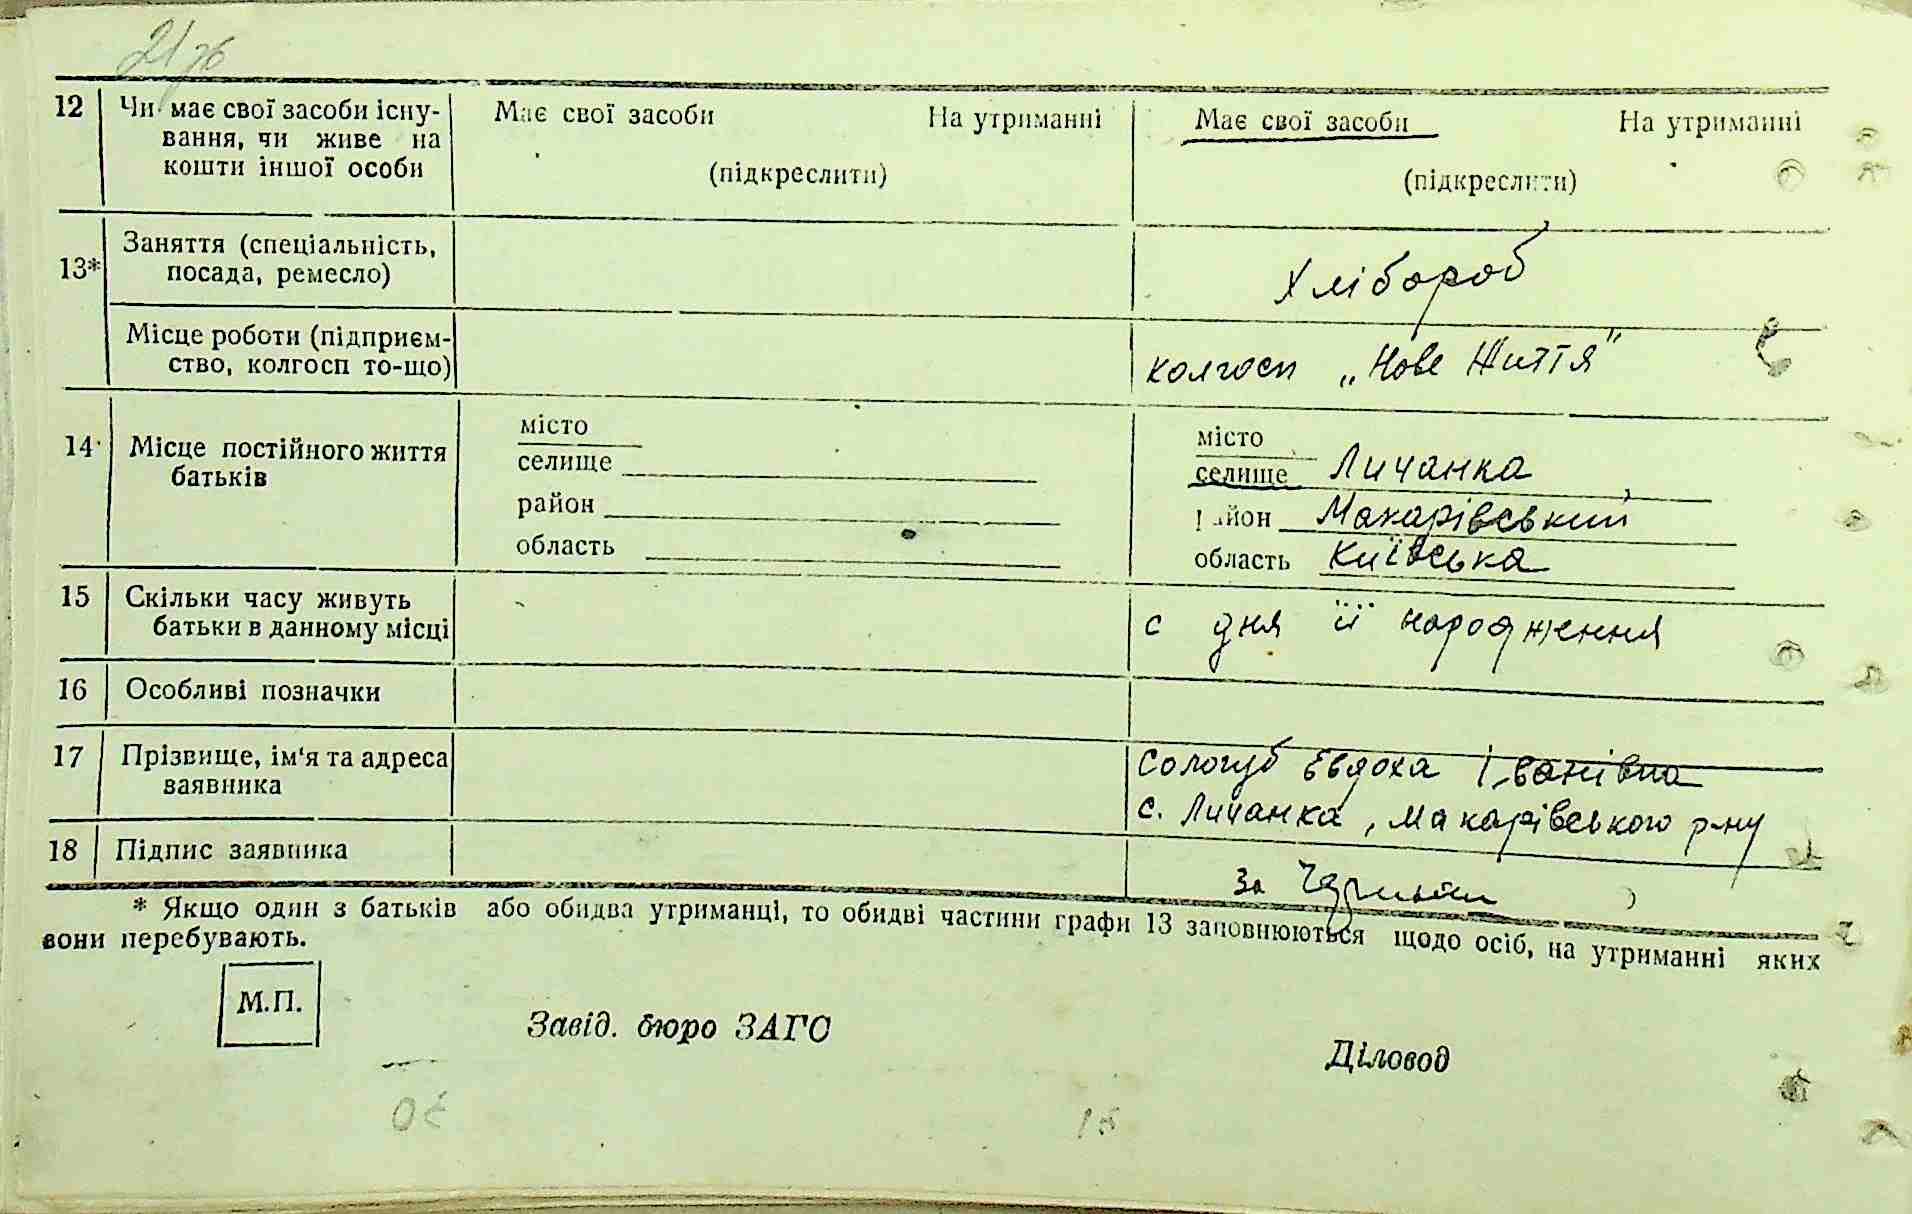 12 Чи має свої засоби існу- Має свої засоби На утриманні Має свої засоби На утриманні
вання, чи живе на
кошти іншої особи (підкреслити) (підкреслити)
13* Заняття (спеціальність,
посада, ремесло) Хлібороб
Місце роботи (підприєм-
ство, колгосп то-що) колгосп „Нове Життя"
14 Місце постійного життя
батьків
місто
селище
район
область
місто
селище Личанка
район Макарівський
область Київська
15 Скільки часу живуть
батьки в данному місці с дня її народження
16 Особливі позначки
17 Прізвище, ім'я та адреса
заявника
Сологуб Евдоха Іванівна
с. Личанка, Макарівського р-ну
18 Підпис заявника за
* Якщо один з батьків або обидва утриманці, то обидві частини графи 13 заповнюються щодо осіб, на утриманні яких
вони перебувають.
М.П.
Завід. бюро ЗАГС
Діловод